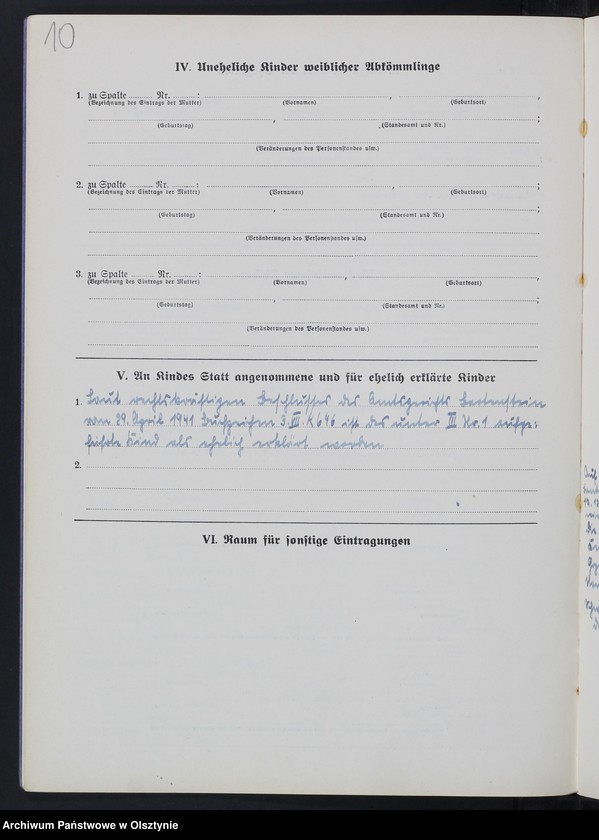 10
IV. Uneheliche Kinder weiblicher Abkömmlinge
1. zu Spalte ........ Nr. ........ : , ,
(Bezeichnung des Eintrags der Mutter) (Vornamen) (Geburtsort)
, ;
(Geburtstag) (Standesamt und Nr.)
(Veränderungen des Personenstandes usw.)
2. zu Spalte ........ Nr. ........ : , ;
(Bezeichnung des Eintrags der Mutter) (Vornamen) (Geburtsort)
, ;
(Geburtstag) (Standesamt und Nr.)
(Veränderungen des Personenstandes usw.)
3. zu Spalte ........ Nr. ........ : , ,
(Bezeichnung des Eintrags der Mutter) (Vornamen) (Geburtsort)
, ;
(Geburtstag) (Standesamt und Nr.)
(Veränderungen des Personenstandes usw.)
V. An Kindes Statt angenommene und für ehelich erklärte Kinder
1. Laut rechtskräftigen Beschlusses des Amtsgerichts Bartenstein
vom 29. April 1941 3. VII. K 646 ist das unter III Nr. 1 aufge-
führte Kind als ehelich erklärt worden
2.
VI. Raum für sonstige Eintragungen
Archiwum Państwowe w Olsztynie